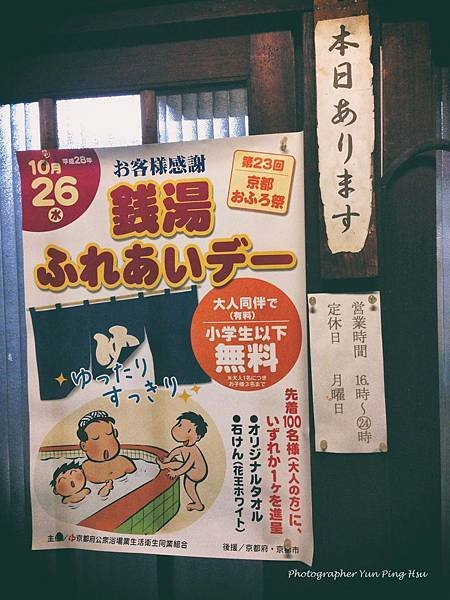 10月
平成28年
26
水
お客様感謝
第23回
京都
おふろ祭
銭湯
ふれあいデー
大人同伴で
(有料)
小学生以下
無料
※大人1名につき
お子様3名まで
ゆ
ゆったり
すっきり
先着100名様(大人の方)に、
いずれか1ヶを進呈
●オリジナルタオル
●石けん(花王ホワイト)
主催/ゆ京都府公衆浴場業生活衛生同業組合
後援/京都府・京都市
本日あります
営業時間 16時〜24時
定休日 月曜日
Photographer Yun Ping Hsu